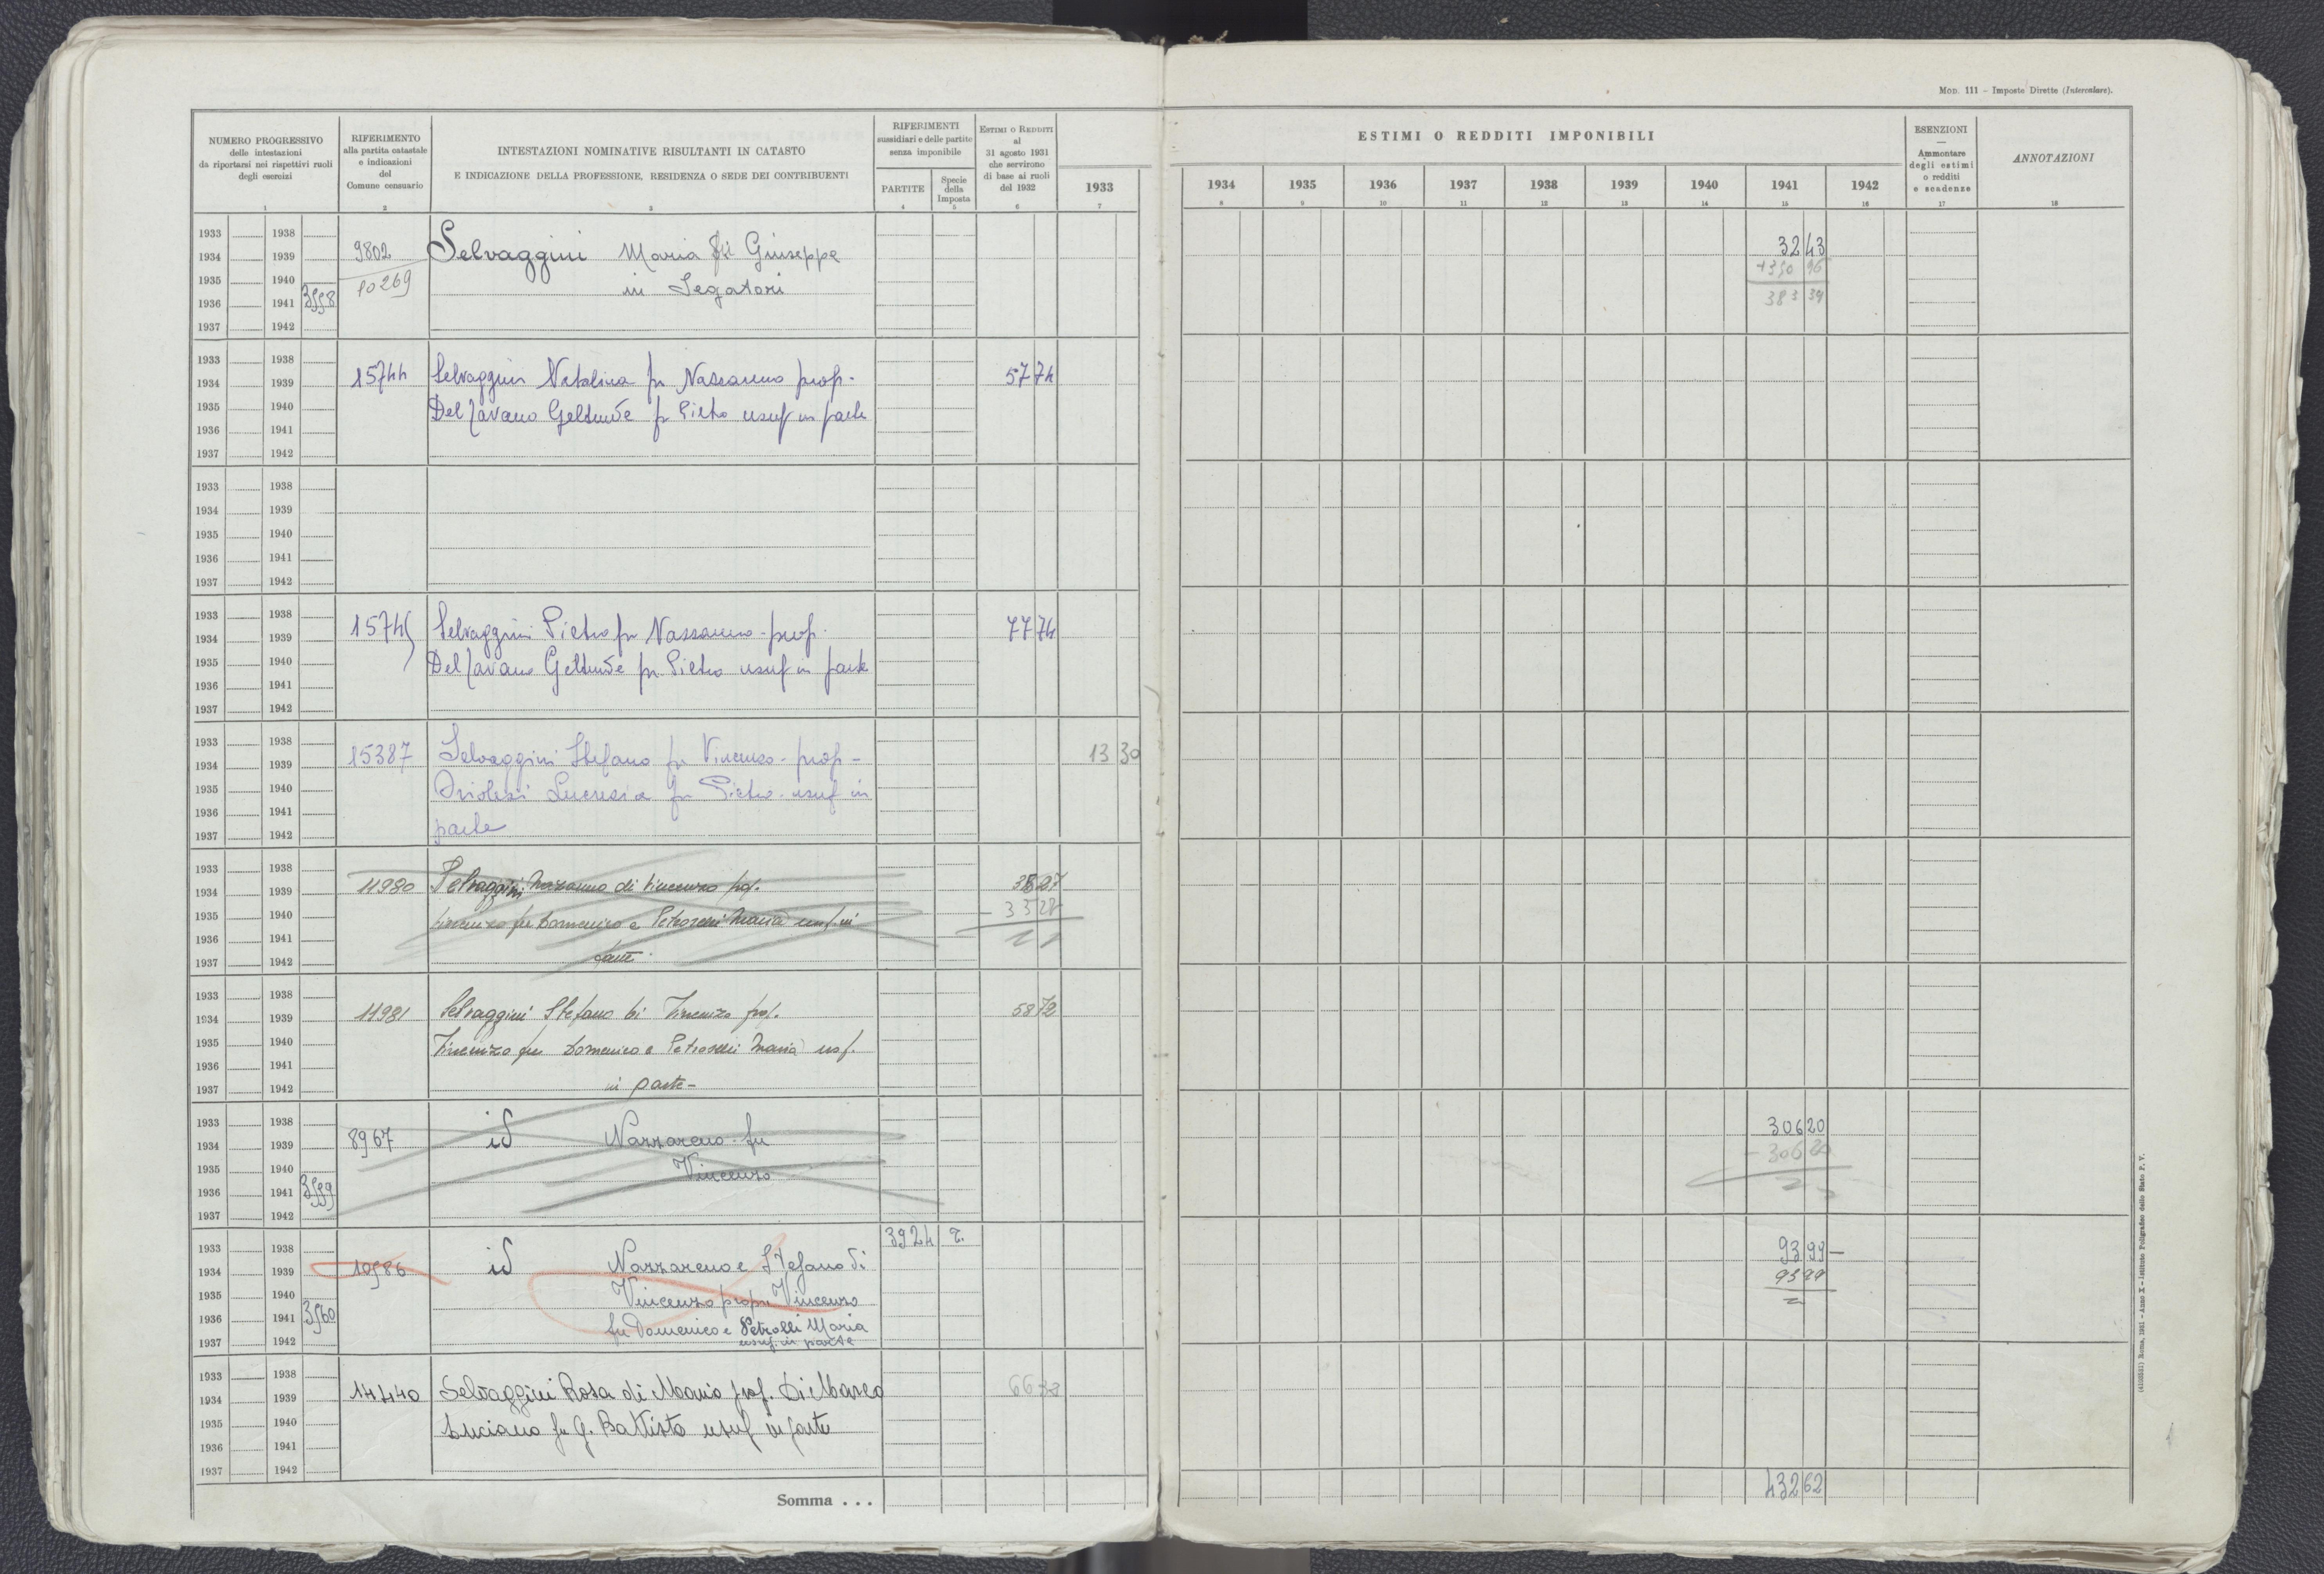 Mod. 111 – Imposte Dirette (Intercalare).
NUMERO PROGRESSIVO
delle intestazioni
da riportarsi nei rispettivi ruoli
degli esercizi
1
RIFERIMENTO
alla partita catastale
e indicazioni
del
Comune censuario
2
INTESTAZIONI NOMINATIVE RISULTANTI IN CATASTO
E INDICAZIONE DELLA PROFESSIONE, RESIDENZA O SEDE DEI CONTRIBUENTI
3
RIFERIMENTI
sussidiari e delle partite
senza imponibile
PARTITE
4
Specie
della
Imposta
5
Estimi o Redditi
al
31 agosto 1931
che servirono
di base ai ruoli
del 1932
6
1933
7
ESTIMI O REDDITI IMPONIBILI
1934 1935 1936 1937 1938 1939 1940 1941 1942
8 9 10 11 12 13 14 15 16
ESENZIONI
—
Ammontare
degli estimi
o redditi
e scadenze
17
ANNOTAZIONI
18
1933 1938
1934 1939 9802 Selvaggini Maria fu Giuseppe 32 43
1935 1940 10269 in Segatori
1936 1941 383 39
1937 1942
1933 1938
1934 1939 15744 Selvaggini Natalina fu Nazzareno prop. 57 74
1935 1940 fu Pietro usuf in parte
1936 1941
1937 1942
1933 1938
1934 1939
1935 1940
1936 1941
1937 1942
1933 1938
1934 1939 15745 Selvaggini Pietro fu Nazzareno - prop. 77 74
1935 1940 fu Pietro usuf in parte
1936 1941
1937 1942
1933 1938
1934 1939 15387 Selvaggini Stefano fu Vincenzo - prop - 13 30
1935 1940 Lucrezia fu Pietro - usuf in
1936 1941
1937 1942 parte
1933 1938
1934 1939 11980 Selvaggini Nazzareno di Vincenzo prop. 27
1935 1940 Vincenzo fu Domenico e Petroselli Maria usuf. in - 33 28
1936 1941
1937 1942 parte
1933 1938
1934 1939 11981 Selvaggini Stefano di Vincenzo prop. 58 72
1935 1940 Vincenzo fu Domenico e Petroselli Maria usuf.
1936 1941
1937 1942 in parte -
1933 1938 306 20
1934 1939 8967 id Nazzareno fu - 306 20
1935 1940 Vincenzo
1936 1941
1937 1942
1933 1938 3924 93 99 —
1934 1939 id Nazzareno e Stefano di 93 99
1935 1940 Vincenzo prop. Vincenzo
1936 1941 3560 fu Domenico e Petrolli Maria
1937 1942 usuf. in parte
1933 1938
1934 1939 14440 Selvaggini Rosa di Mario prop. Di Marco
1935 1940 Luciano fu G. Battista usuf in parte
1936 1941
1937 1942
Somma . . . 432 62